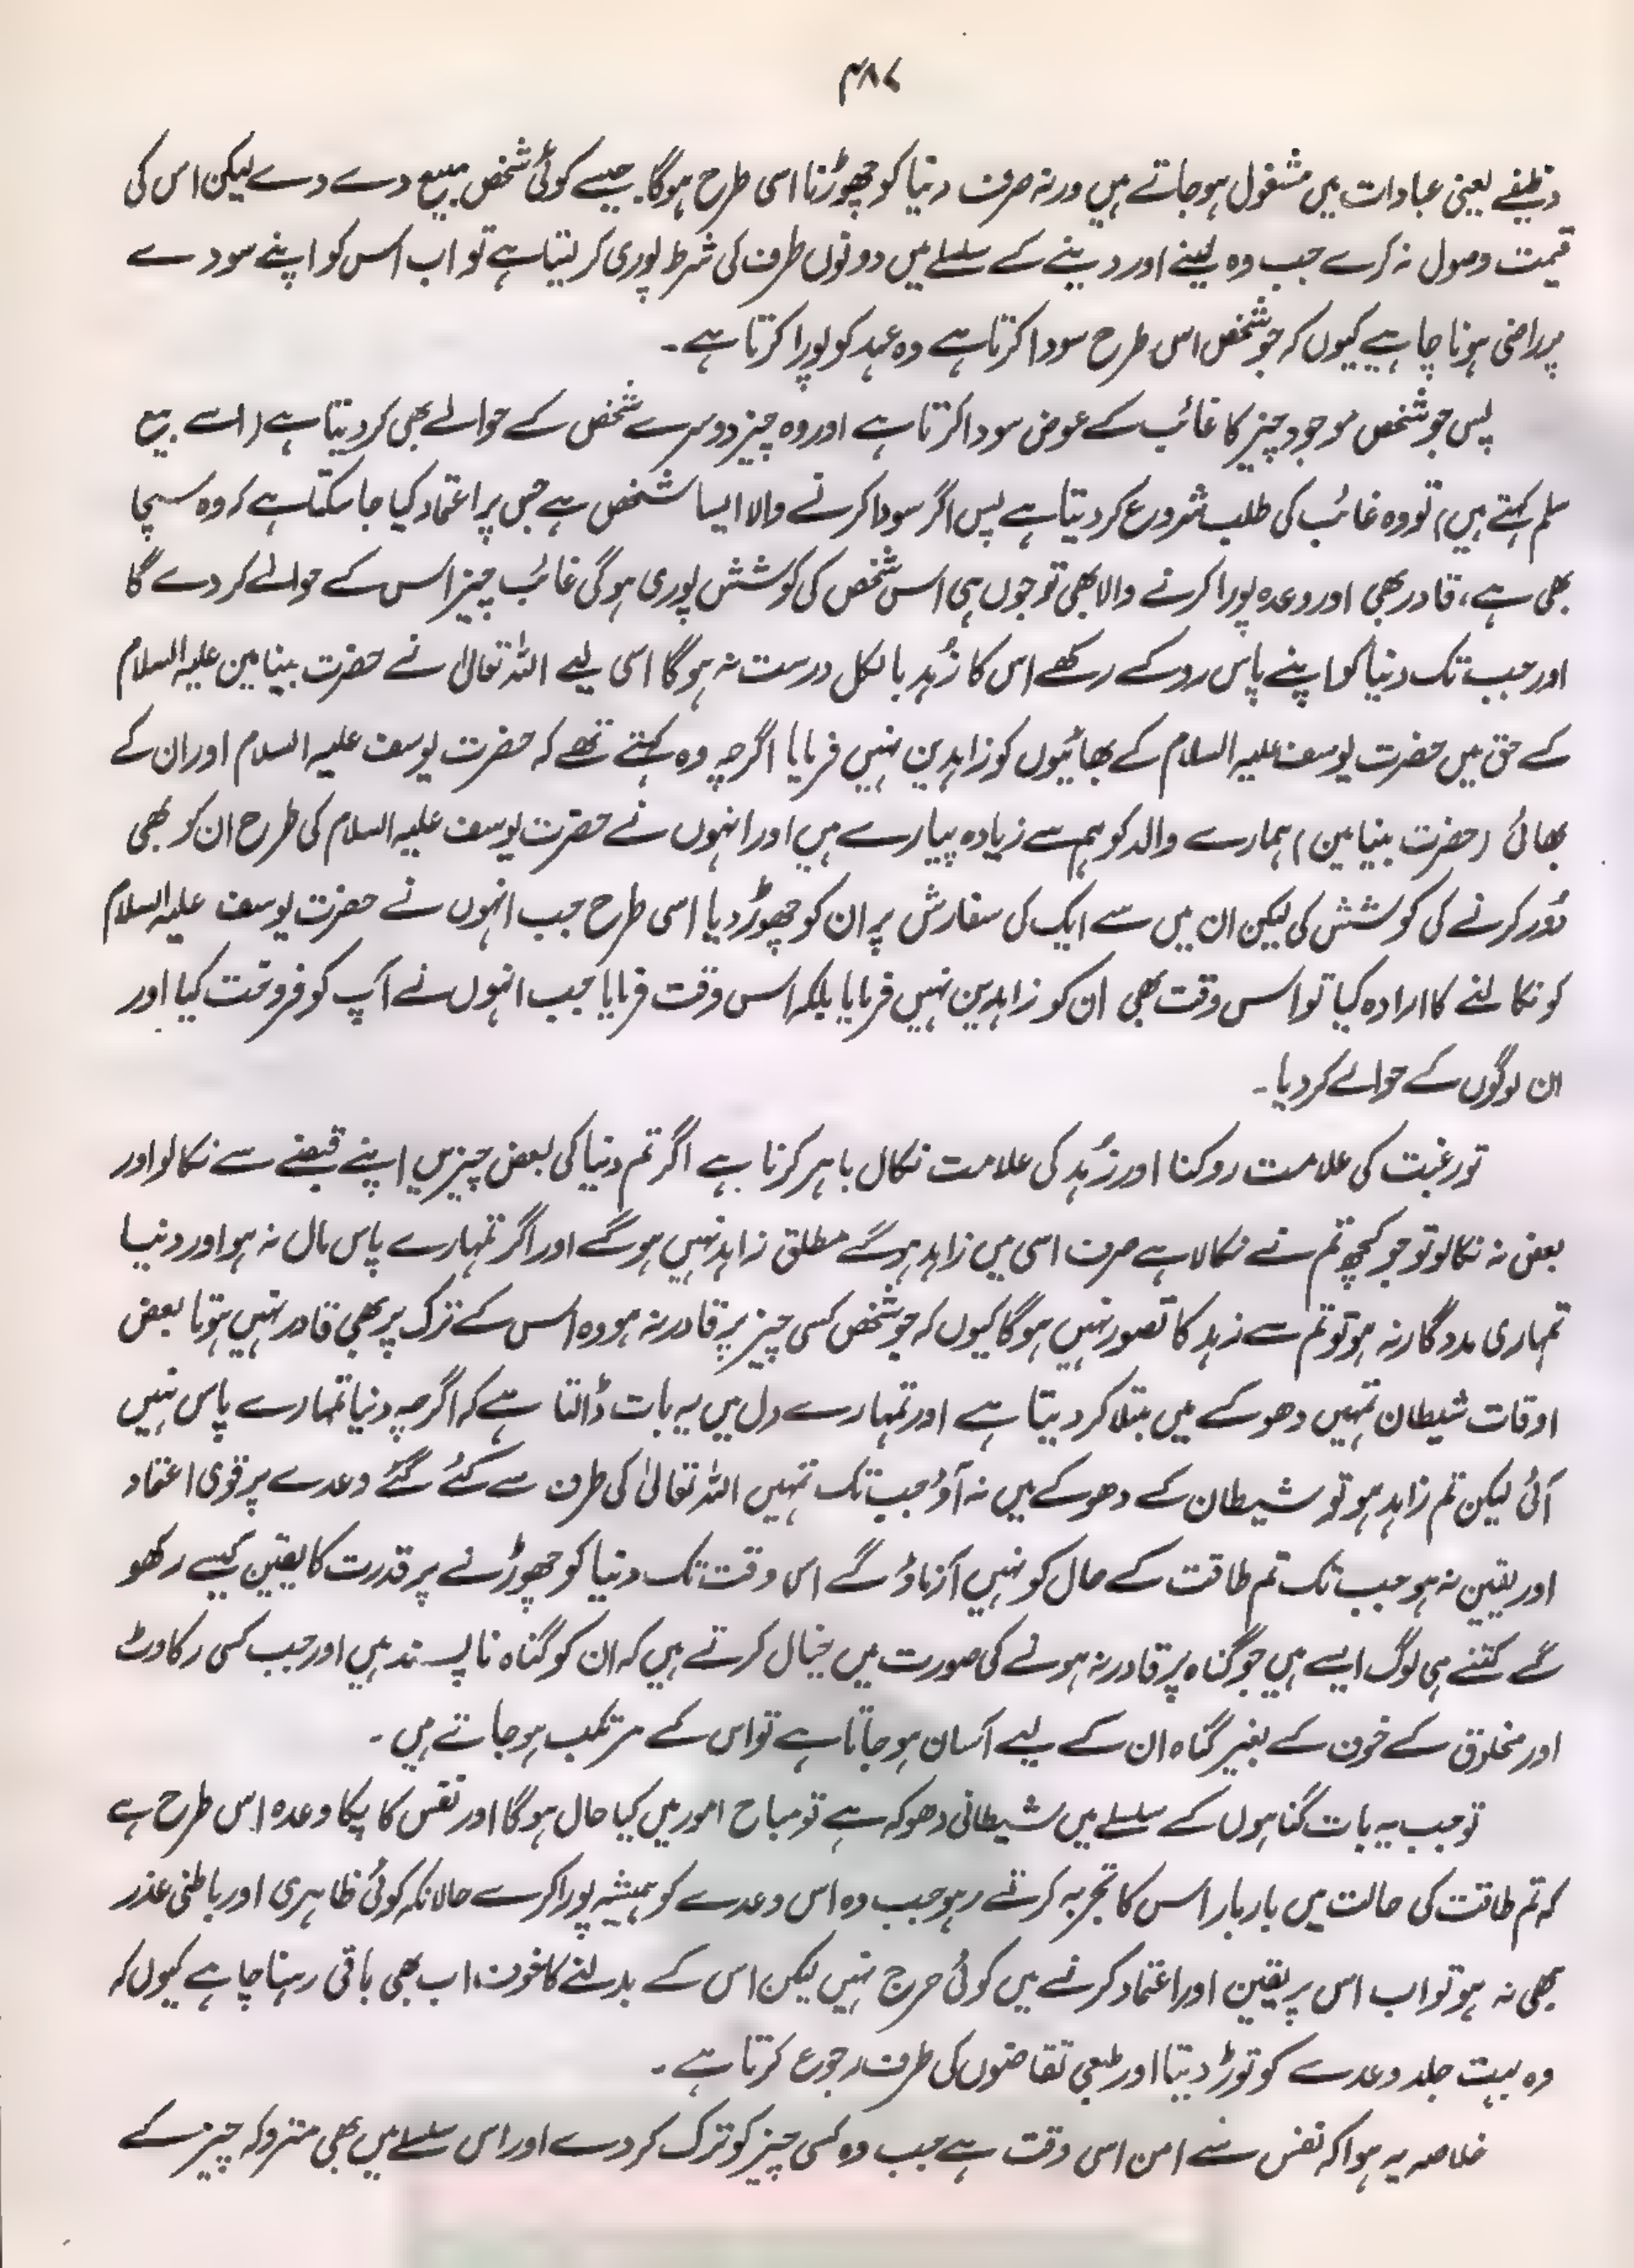 ۴۸۷
وظیفے یعنی عبادات میں مشغول ہو جاتے ہیں ورنہ صرف دنیا کو چھوڑنا اسی طرح ہوگا۔ جیسے کوئی شخص مبیع دے دے لیکن اس کی
قیمت وصول نہ کرے جب وہ لینے اور دینے کے سلسلے میں دونوں طرف کی شرط پوری کر لیتا ہے تو اب اس کو اپنے سودے
پر راضی ہونا چاہیے کیوں کہ جو شخص اس طرح سودا کرتا ہے وہ عہد کو پورا کرتا ہے۔
پس جو شخص موجود چیز کا غائب کے عوض سودا کرتا ہے اور وہ چیز دوسرے شخص کے حوالے بھی کر دیتا ہے (اسے بیع
سلم کہتے ہیں) تو وہ غائب کی طلب شروع کر دیتا ہے پس اگر سودا کرنے والا ایسا شخص ہے جس پر اعتماد کیا جا سکتا ہے کہ وہ سچا
بھی ہے، قادر بھی اور وعدہ پورا کرنے والا بھی تو جوں ہی اس شخص کی کوشش پوری ہوگی غائب چیز اس کے حوالے کر دے گا
اور جب تک دنیا کو اپنے پاس روکے رکھے اس کا زُہد بالکل درست نہ ہوگا اسی لیے اللہ تعالیٰ نے حضرت بنیامین علیہ السلام
کے حق میں حضرت یوسف علیہ السلام کے بھائیوں کو زاہدین نہیں فرمایا اگرچہ وہ کہتے تھے کہ حضرت یوسف علیہ السلام اور ان کے
بھائی (حضرت بنیامین) ہمارے والد کو ہم سے زیادہ پیارے ہیں اور انہوں نے حضرت یوسف علیہ السلام کی طرح ان کو بھی
دُور کرنے کی کوشش کی لیکن ان میں سے ایک کی سفارش پر ان کو چھوڑ دیا اسی طرح جب انہوں نے حضرت یوسف علیہ السلام
کو نکالنے کا ارادہ کیا تو اس وقت بھی ان کو زاہدین نہیں فرمایا بلکہ اس وقت فرمایا جب انہوں نے آپ کو فروخت کیا اور
ان لوگوں کے حوالے کر دیا۔
تو رغبت کی علامت روکنا اور زُہد کی علامت نکال باہر کرنا ہے اگر تم دنیا کی بعض چیزیں اپنے قبضے سے نکالو اور
بعض نہ نکالو تو جو کچھ تم نے نکالا ہے صرف اسی میں زاہد ہو گے مطلق زاہد نہیں ہو گے اور اگر تمہارے پاس مال نہ ہو اور دنیا
تمہاری مددگار نہ ہو تو تم سے زہد کا تصور نہیں ہوگا کیوں کہ جو شخص کسی چیز پر قادر نہ ہو وہ اس کے ترک پر بھی قادر نہیں ہوتا بعض
اوقات شیطان تمہیں دھوکے میں مبتلا کر دیتا ہے اور تمہارے دل میں یہ بات ڈالتا ہے کہ اگرچہ دنیا تمہارے پاس نہیں
آئی لیکن تم زاہد ہو تو شیطان کے دھوکے میں نہ آؤ جب تک تمہیں اللہ تعالیٰ کی طرف سے کئے گئے وعدے پر قوی اعتماد
اور یقین نہ ہو جب تک تم طاقت کے حال کو نہیں آزماؤ گے اس وقت تک دنیا کو چھوڑنے پر قدرت کا یقین کیسے رکھو
گے کتنے ہی لوگ ایسے ہیں جو گناہ پر قادر نہ ہونے کی صورت میں خیال کرتے ہیں کہ ان کو گناہ ناپسند ہیں اور جب کسی رکاوٹ
اور مخلوق کے خوف کے بغیر گناہ ان کے لیے آسان ہو جاتا ہے تو اس کے مرتکب ہو جاتے ہیں۔
تو جب یہ بات گناہوں کے سلسلے میں شیطانی دھوکہ ہے تو مباح امور میں کیا حال ہوگا اور نفس کا پکا وعدہ اس طرح ہے
کہ تم طاقت کی حالت میں بار بار اس کا تجربہ کرتے رہو جب وہ اس وعدے کو ہمیشہ پورا کرے حالانکہ کوئی ظاہری اور باطنی عذر
بھی نہ ہو تو اب اس پر یقین اور اعتماد کرنے میں کوئی حرج نہیں لیکن اس کے بدلنے کا خوف اب بھی باقی رہنا چاہے کیوں کہ
وہ بہت جلد وعدے کو توڑ دیتا اور طبعی تقاضوں کی طرف رجوع کرتا ہے۔
خلاصہ یہ ہوا کہ نفس سے امن اسی وقت ہے جب وہ کسی چیز کو ترک کر دے اور اس سلسلے میں بھی متروکہ چیز کے